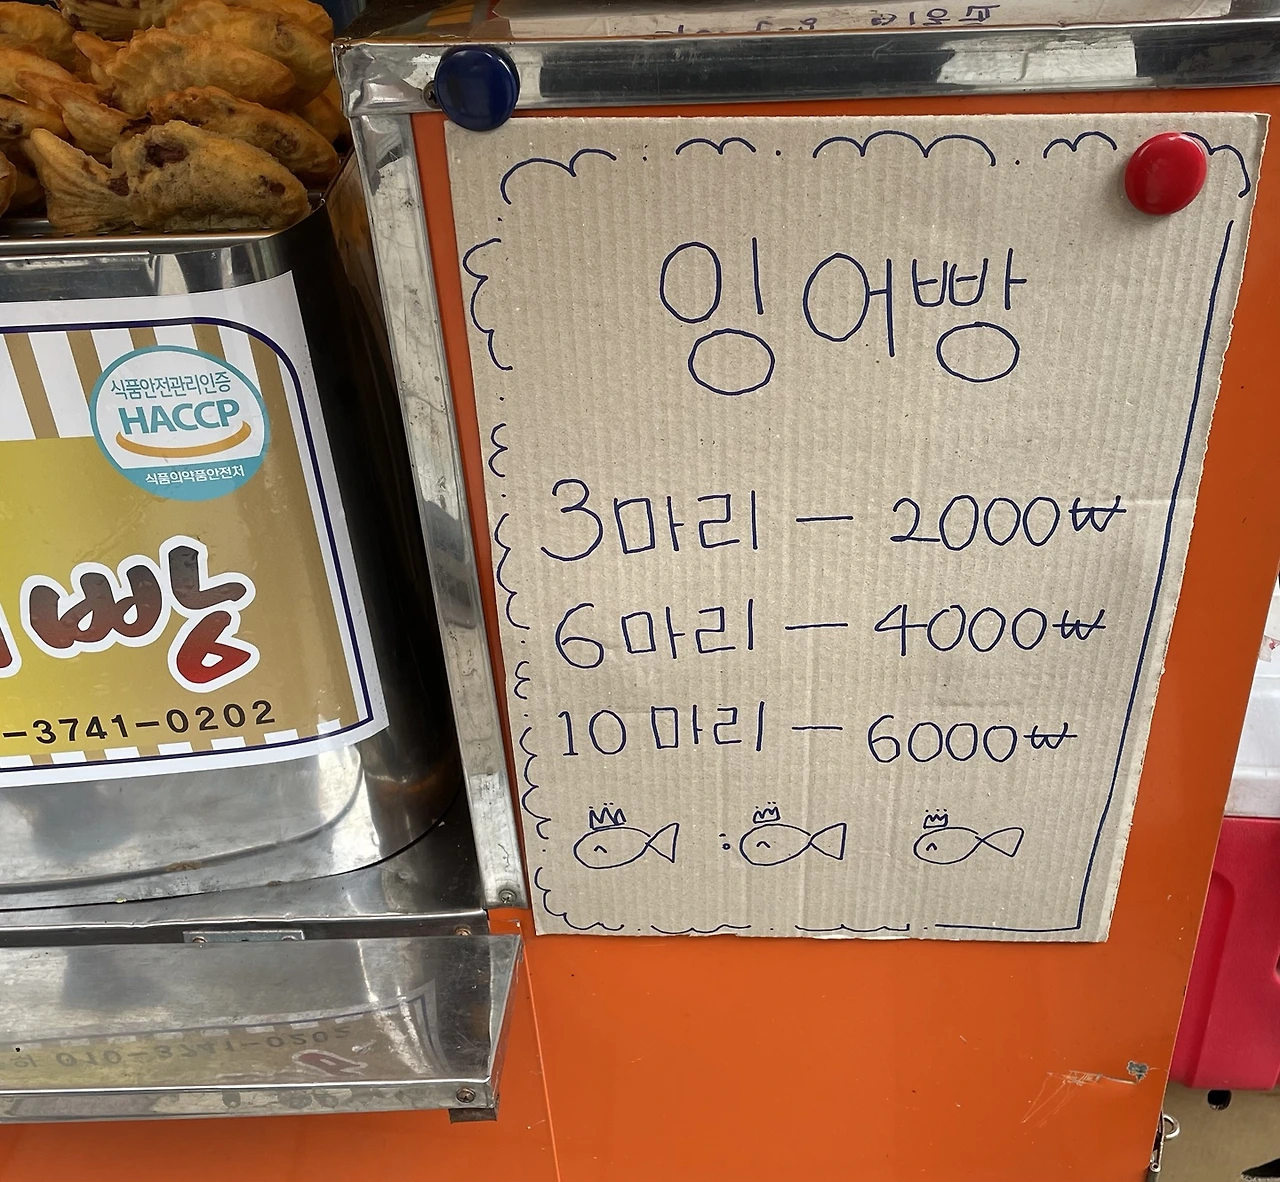 잉어빵
3마리 - 2000₩
6마리 - 4000₩
10마리 - 6000₩
식품안전관리인증
HACCP
식품의약품안전처
빵
-3741-0202